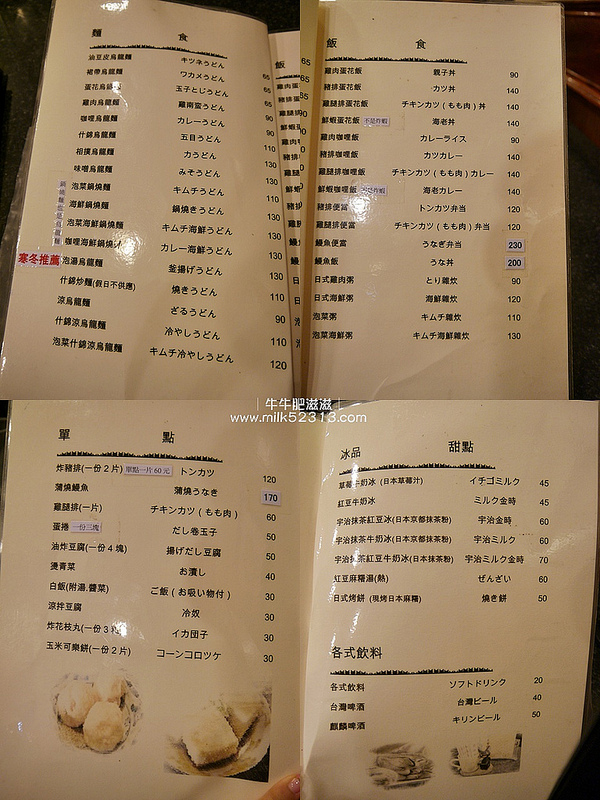 麵 食
油豆皮烏龍麵 キツネうどん 65
裙帶烏龍麵 ワカメうどん 65
蛋花烏龍麵 玉子とじうどん 65
雞肉烏龍麵 雞南蛮うどん 80
咖哩烏龍麵 カレーうどん 90
什錦烏龍麵 五目うどん 90
相撲烏龍麵 力うどん 110
味噌烏龍麵 みそうどん 130
泡菜鍋燒麵 キムチうどん 130
海鮮鍋燒麵 鍋焼きうどん 110
泡菜海鮮鍋燒麵 キムチ海鮮うどん 130
咖哩海鮮鍋燒 カレー海鮮うどん 130
寒冬推薦 泡湯烏龍麵 釜揚げうどん 130
什錦炒麵(假日不供應) 焼きうどん 110
涼烏龍麵 ざるうどん 90
什錦涼烏龍麵 冷やしうどん 110
泡菜什錦涼烏龍麵 キムチ冷やしうどん 120
飯 食
雞肉蛋花飯 親子丼 90
豬排蛋花飯 カツ丼 140
雞腿排蛋花飯 チキンカツ(もも肉)丼 140
鮮蝦蛋花飯 不是炸蝦 海老丼 140
雞肉咖哩飯 カレーライス 90
豬排咖哩飯 カツカレー 140
雞腿排咖哩飯 チキンカツ(もも肉)カレー 140
鮮蝦咖哩飯 不是炸蝦 海老カレー 140
豬排便當 トンカツ弁当 120
雞腿排便當 チキンカツ(もも肉)弁当 120
鰻魚便當 うなぎ弁当 230
鰻魚飯 うな丼 200
日式雞肉粥 とり雜炊 90
日式海鮮粥 海鮮雜炊 120
泡菜粥 キムチ雜炊 110
泡菜海鮮粥 キムチ海鮮雜炊 130
牛牛肥滋滋
www.milk52313.com
單 點
炸豬排(一份2片) 單點一片60元 トンカツ 120
蒲燒鰻魚 蒲燒うなぎ 170
雞腿排(一片) チキンカツ(もも肉) 60
蛋捲 一份三塊 だし卷玉子 50
油炸豆腐(一份4塊) 揚げだし豆腐 50
燙青菜 お漬し 40
白飯(附湯,醬菜) ご飯(お吸い物付) 30
涼拌豆腐 冷奴 30
炸花枝丸(一份3粒) イカ団子 30
玉米可樂餅(一份2片) コーンコロッケ 30
冰品 甜點
草莓牛奶冰(日本草莓汁) イチゴミルク 45
紅豆牛奶冰 ミルク金時 45
宇治抹茶紅豆冰(日本京都抹茶粉) 宇治金時 60
宇治抹茶牛奶冰(日本京都抹茶粉) 宇治ミルク 60
宇治抹茶紅豆牛奶冰(日本抹茶粉) 宇治ミルク金時 70
紅豆麻糬湯(熱) ぜんざい 60
日式烤餅(現烤日本麻糬) 焼き餅 50
各式飲料
各式飲料 ソフトドリンク 20
台灣啤酒 台灣ビール 40
麒麟啤酒 キリンビール 50